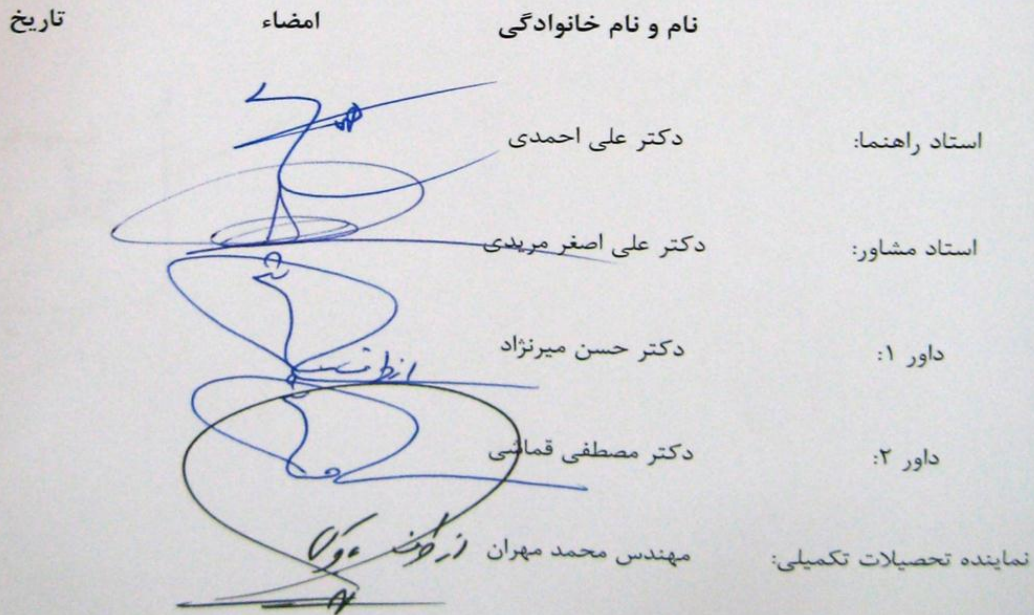 نام و نام خانوادگی امضاء تاریخ
استاد راهنما: دکتر علی احمدی
استاد مشاور: دکتر علی اصغر مریدی
داور ۱: دکتر حسن میرنژاد
از طرف
داور ۲: دکتر مصطفی قماشی
نماینده تحصیلات تکمیلی: مهندس محمد مهران از طرف